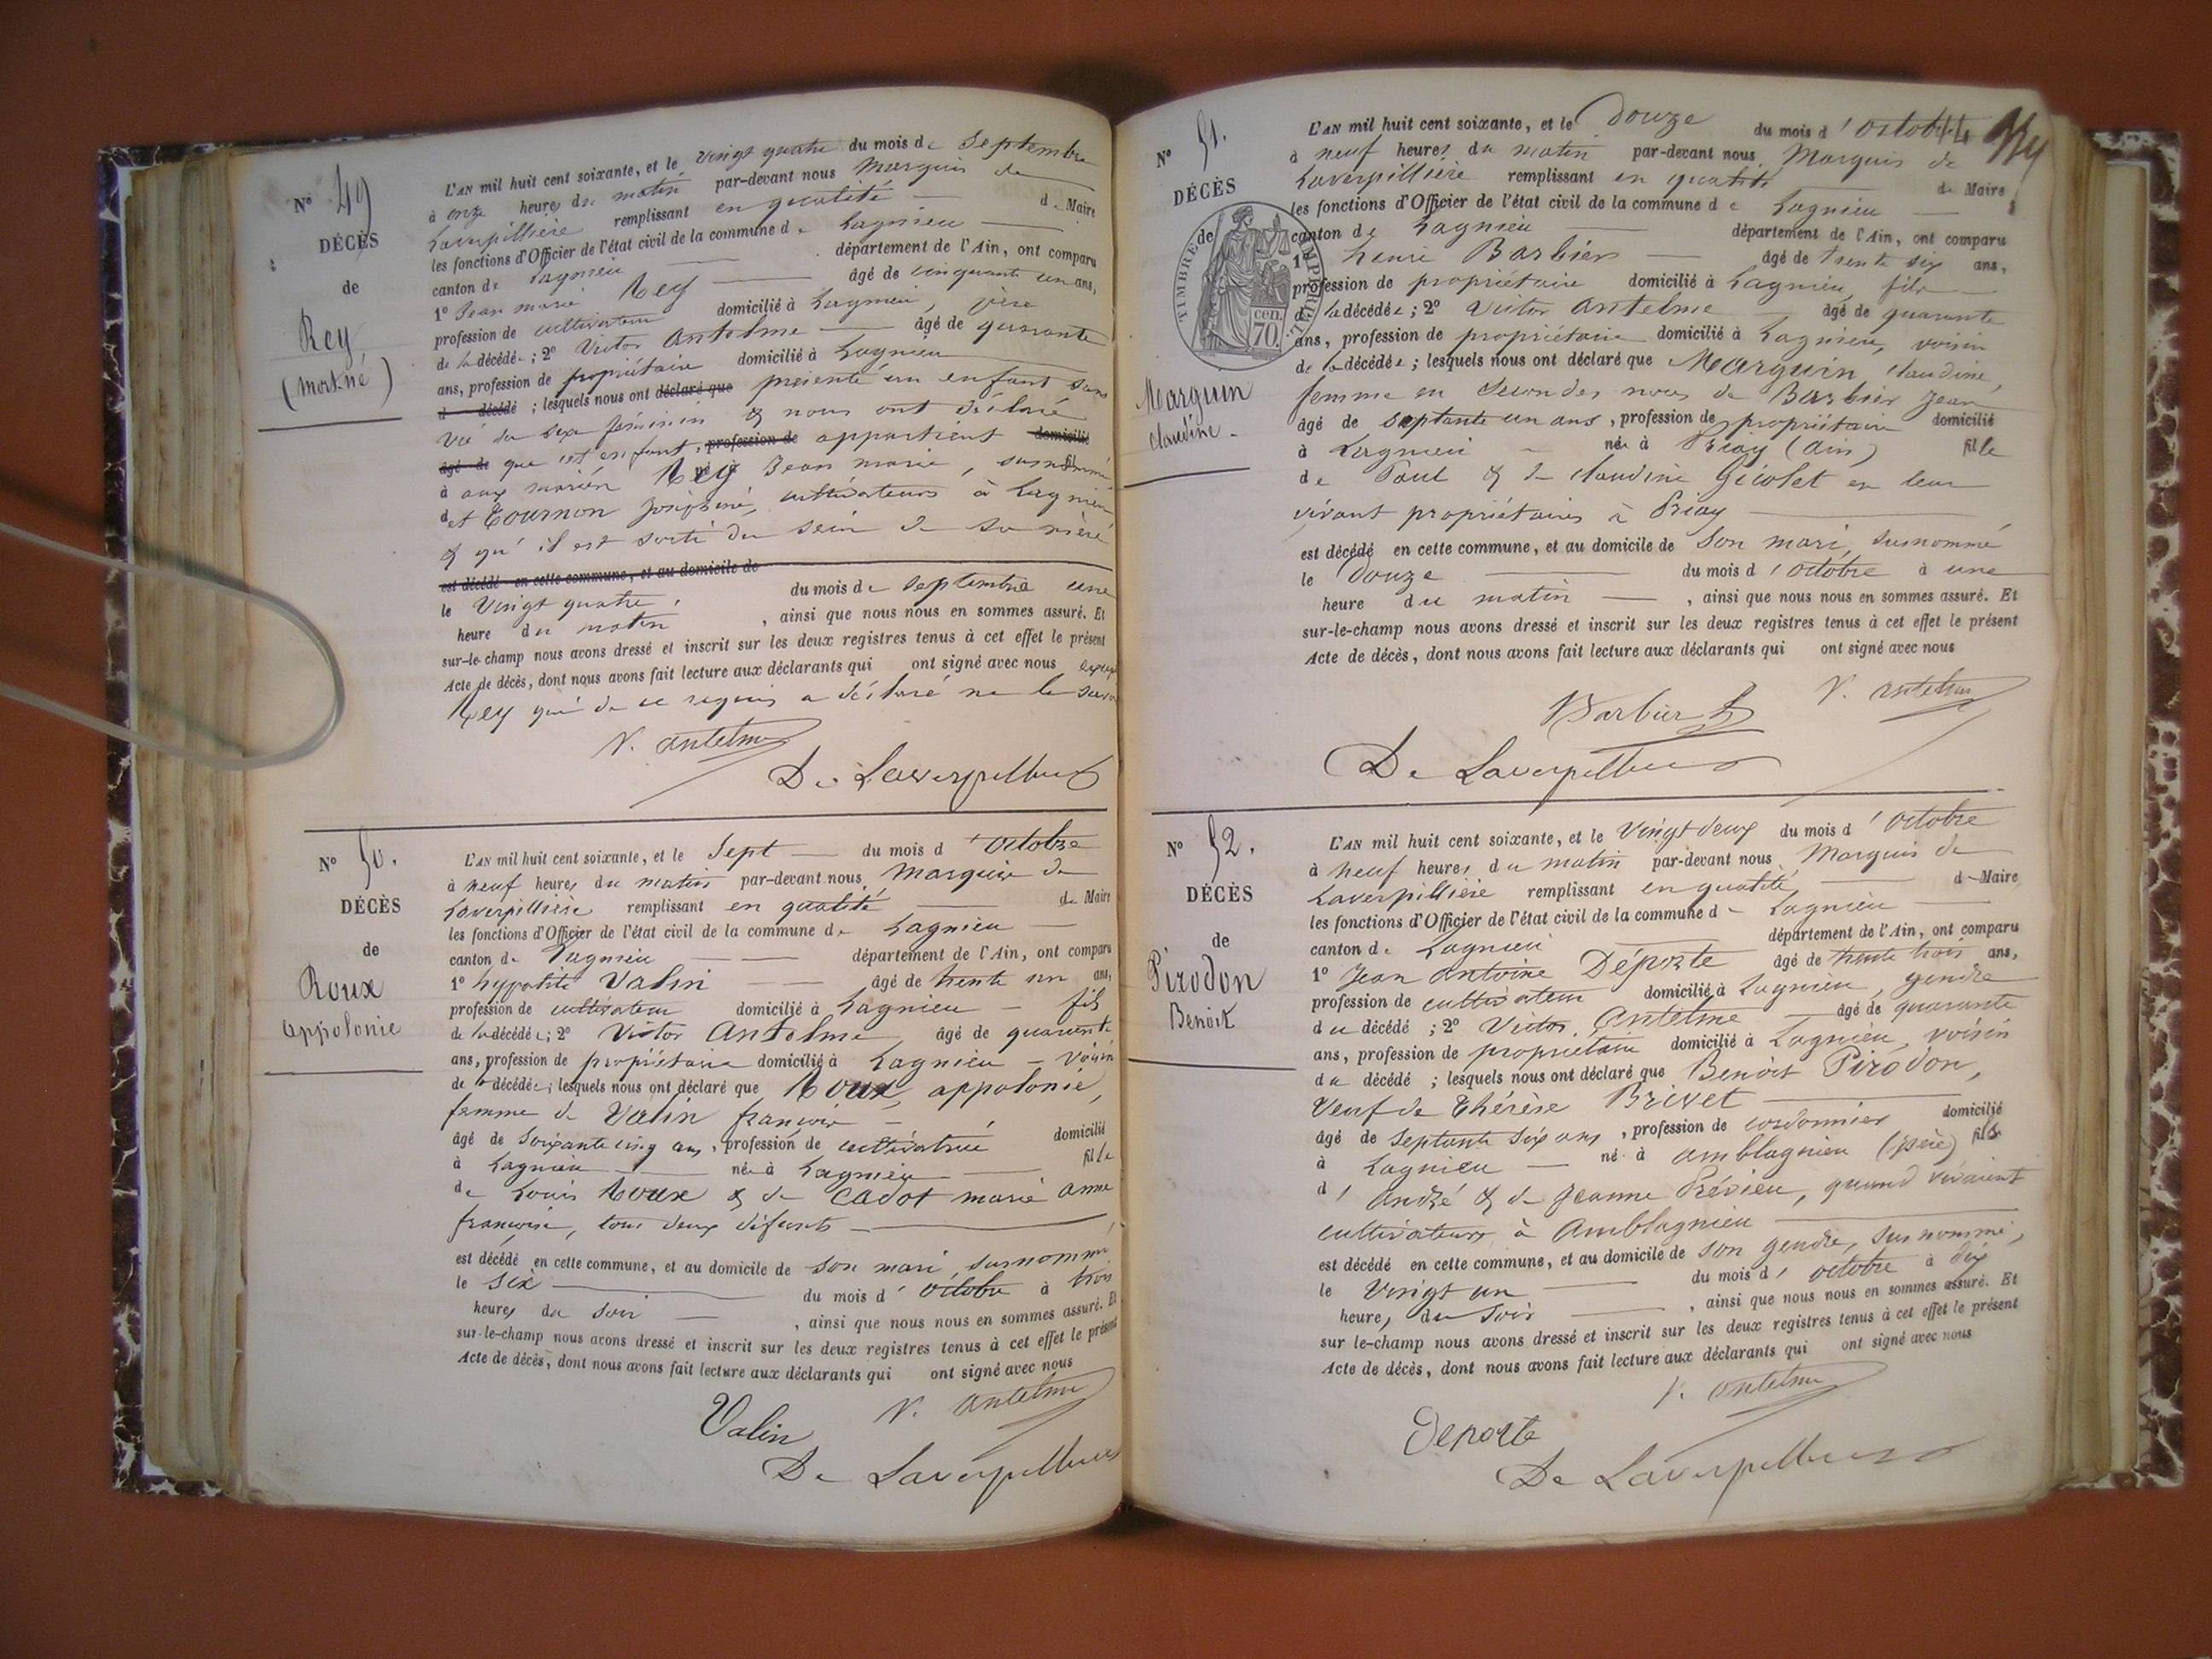 N° 49
DÉCÈS
de
Rey
(mort né)
L'AN mil huit cent soixante, et le vingt quatre du mois de Septembre
à onze heures du matin par-devant nous Marquis de
Laverpillière remplissant en qualité de Maire
les fonctions d'Officier de l'état civil de la commune de Lagnieu
canton de Lagnieu département de l'Ain, ont comparu
1° Jean marie Rey âgé de cinquante un ans,
profession de cultivateur domicilié à Lagnieu, père
de la décédée ; 2° Victor Antelme âgé de quarante
ans, profession de propriétaire domicilié à Lagnieu
d décédé ; lesquels nous ont déclaré que présenté un enfant sans
vie du sexe féminin & nous ont déclaré
âgé de que cet enfant, profession de appartient domicilié
à aux mariés Rey né à Jean marie, susnommé fil
d et Tournon Joséphine, cultivateurs à Lagnieu
& qu'il est sorti du sein de sa mère
est décédé en cette commune, et au domicile de
le vingt quatre, du mois de septembre une
heure du matin , ainsi que nous nous en sommes assuré. Et
sur-le-champ nous avons dressé et inscrit sur les deux registres tenus à cet effet le présent
Acte de décès, dont nous avons fait lecture aux déclarants qui ont signé avec nous excepté
Rey qui de ce requis a déclaré ne le savoir
V. antelme
De Laverpilliere
N° 50.
DÉCÈS
de
Roux
appolonie
L'AN mil huit cent soixante, et le Sept du mois d'octobre
à neuf heures du matin par-devant nous Marquis de
Laverpillière remplissant en qualité de Maire
les fonctions d'Officier de l'état civil de la commune de Lagnieu
canton de Lagnieu département de l'Ain, ont comparu
1° hypolite Valin âgé de trente un ans,
profession de cultivateur domicilié à Lagnieu fils
de la décédée ; 2° Victor Antelme âgé de quarante
ans, profession de propriétaire domicilié à Lagnieu voisin
de la décédée ; lesquels nous ont déclaré que Roux, appolonie,
femme de Valin françois
âgé de soixante cinq ans, profession de cultivatrice domicilié
à Lagnieu née à Lagnieu fille
de Louis Roux & de Cadot marie anne
françoise, tous deux défunts
est décédé en cette commune, et au domicile de son mari, susnommé
le six du mois d'octobre à trois
heures du soir , ainsi que nous nous en sommes assuré. Et
sur-le-champ nous avons dressé et inscrit sur les deux registres tenus à cet effet le présent
Acte de décès, dont nous avons fait lecture aux déclarants qui ont signé avec nous
Valin V. antelme
De Laverpilliere
N° 51.
DÉCÈS
de
TIMBRE IMPERIAL
70 cen.
Marguin
Claudine
L'AN mil huit cent soixante, et le Douze du mois d'octobre
à neuf heures du matin par-devant nous Marquis de
Laverpillière remplissant en qualité de Maire
les fonctions d'Officier de l'état civil de la commune de Lagnieu
canton de Lagnieu département de l'Ain, ont comparu
1° henri Barbier âgé de trente six ans,
profession de propriétaire domicilié à Lagnieu, fils
de la décédée ; 2° Victor antelme âgé de quarante
ans, profession de propriétaire domicilié à Lagnieu, voisin
de la décédée ; lesquels nous ont déclaré que Marguin Claudine,
femme en secondes noces de Barbier Jean
âgé de septante un ans, profession de propriétaire domicilié
à Lagnieu née à Priay (ain) fille
de Paul & de Claudine Gicolet en leur
vivant propriétaires à Priay
est décédé en cette commune, et au domicile de son mari, susnommé
le Douze du mois d'octobre à une
heure du matin , ainsi que nous nous en sommes assuré. Et
sur-le-champ nous avons dressé et inscrit sur les deux registres tenus à cet effet le présent
Acte de décès, dont nous avons fait lecture aux déclarants qui ont signé avec nous
Barbier h V. antelme
De Laverpilliere
N° 52.
DÉCÈS
de
Pirodon
Benoit
L'AN mil huit cent soixante, et le vingt deux du mois d'octobre
à neuf heures du matin par-devant nous Marquis de
Laverpillière remplissant en qualité de Maire
les fonctions d'Officier de l'état civil de la commune de Lagnieu
canton de Lagnieu département de l'Ain, ont comparu
1° Jean antoine Déporte âgé de trente trois ans,
profession de cultivateur domicilié à Lagnieu, gendre
du décédé ; 2° Victor Antelme âgé de quarante
ans, profession de propriétaire domicilié à Lagnieu, voisin
du décédé ; lesquels nous ont déclaré que Benoit Pirodon,
veuf de Thérèse Brivet
âgé de septante six ans, profession de cordonnier domicilié
à Lagnieu né à amblagnieu (isère) fils
d'André & de Jeanne Prévieu, quand vivaient
cultivateurs à Amblagnieu
est décédé en cette commune, et au domicile de son gendre, susnommé,
le vingt un du mois d'octobre à dix
heures du soir , ainsi que nous nous en sommes assuré. Et
sur le-champ nous avons dressé et inscrit sur les deux registres tenus à cet effet le présent
Acte de décès, dont nous avons fait lecture aux déclarants qui ont signé avec nous
V. antelme
Deporte
De Laverpilliere